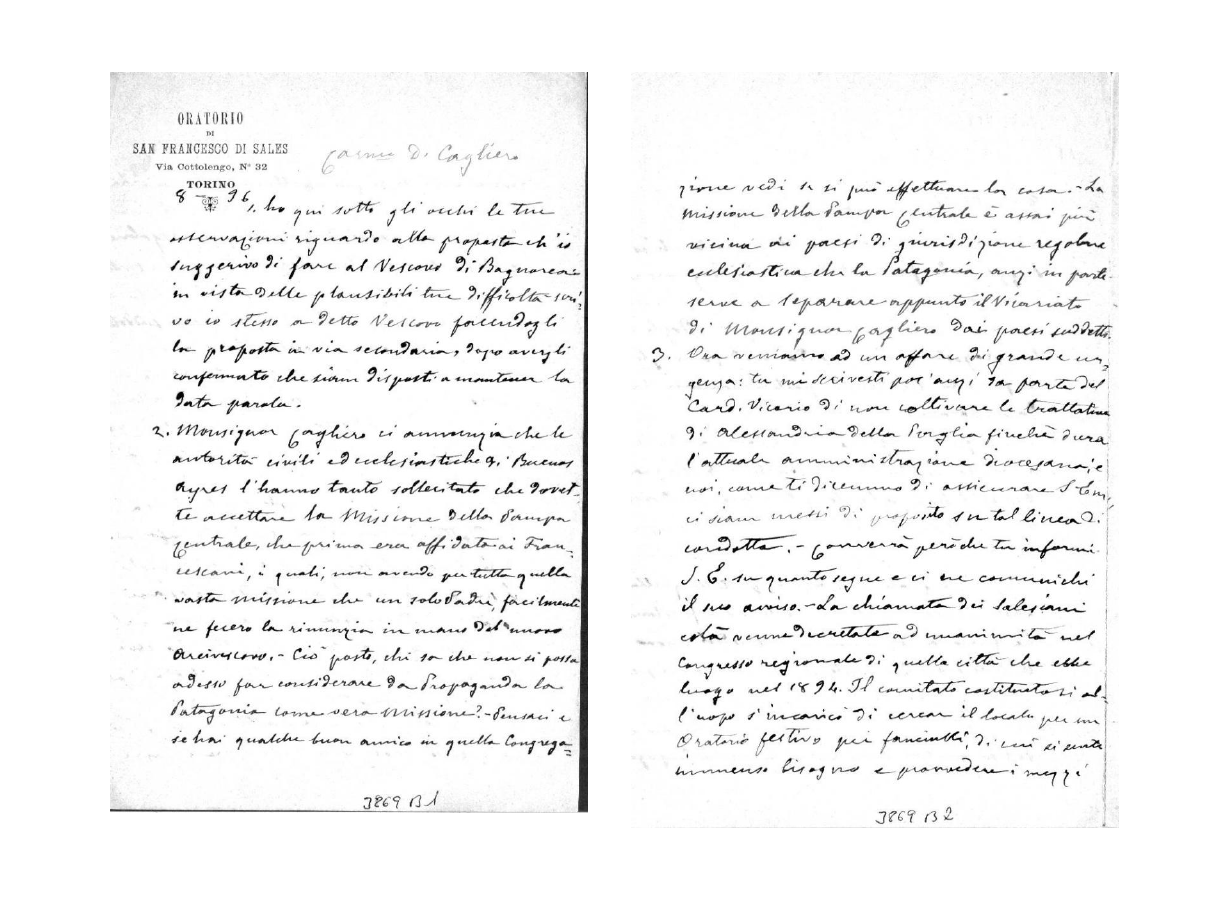 ORATORIO
DI
SAN FRANCESCO DI SALES
Via Cottolengo, N° 32
TORINO
8 96
di Cagliero
ho qui sotto gli occhi le tue
osservazioni riguardo alla proposta ch'io
suggerivo di fare al Vescovo di Bagnorea:
in vista delle plausibili tue difficoltà scri-
vo io stesso a detto Vescovo facendogli
la proposta in via secondaria, dopo avergli
confermato che siam disposti a mantener la
data parola.
2. Monsignor Cagliero ci annunzia che le
autorità civili ed ecclesiastiche di Buenos
Ayres l'hanno tanto sollecitato che dovet-
te accettare la Missione della Pampa
Centrale, che prima era affidata ai Fran-
cescani, i quali, non avendo per tutta quella
vasta missione che un solo Padre, facilmente
ne fecero la rinunzia in mano del nuovo
Arcivescovo. - Ciò posto, chi sa che non si possa
adesso far considerare da Propaganda la
Patagonia come vera Missione? - Pensaci e
se hai qualche buon amico in quella Congrega=
3869 B 1
zione vedi se si può effettuare la cosa. - La
Missione della Pampa Centrale è assai più
vicina ai paesi di giurisdizione regolare
ecclesiastica che la Patagonia, anzi in parte
serve a separare appunto il Vicariato
di Monsignor Cagliero dai paesi suddetti.
3. Ora veniamo ad un affare di grande ur-
genza: tu mi scrivesti poc'anzi da parte del
Card. Vicario di non coltivare le trattative
di Alessandria della Paglia finchè dura
l'attuale amministrazione diocesana; e
noi, come ti dicemmo di assicurare S. Em.,
ci siam messi di proposito su tal linea di
condotta. - Converrà però che tu informi
S. E. su quanto segue e ci ne comunichi
il suo avviso. - La chiamata dei Salesiani
colà venne decretata ad unanimità nel
Congresso regionale di quella città che ebbe
luogo nel 1894. Il comitato costituitosi al-
l'uopo s'incaricò di cercar il locale per un
Oratorio festivo pei fanciulli, di cui si sente
immenso bisogno e provvedere i mezzi
3869 B 2